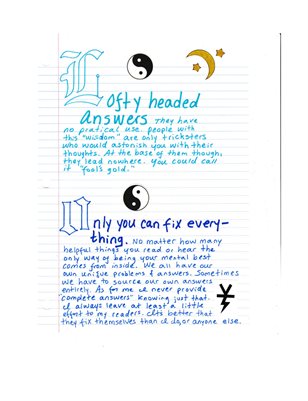 Lofty headed
answers They have
no pratical use. people with
this "wisdom" are only tricksters
who would astonish you with their
thoughts. At the base of them though,
they lead nowhere. You could call
it "fool's gold."
Only you can fix every-
thing. No matter how many
helpful things you read or hear the
only way of being your mental best
comes from inside. We all have our
own unique problems & answers. Sometimes
we have to source our own answers
entirely. As for me I never provide
"complete answers" knowing just that.
I always leave at least a little
effort to my readers. Its better that
they fix themselves than I do, or anyone else.